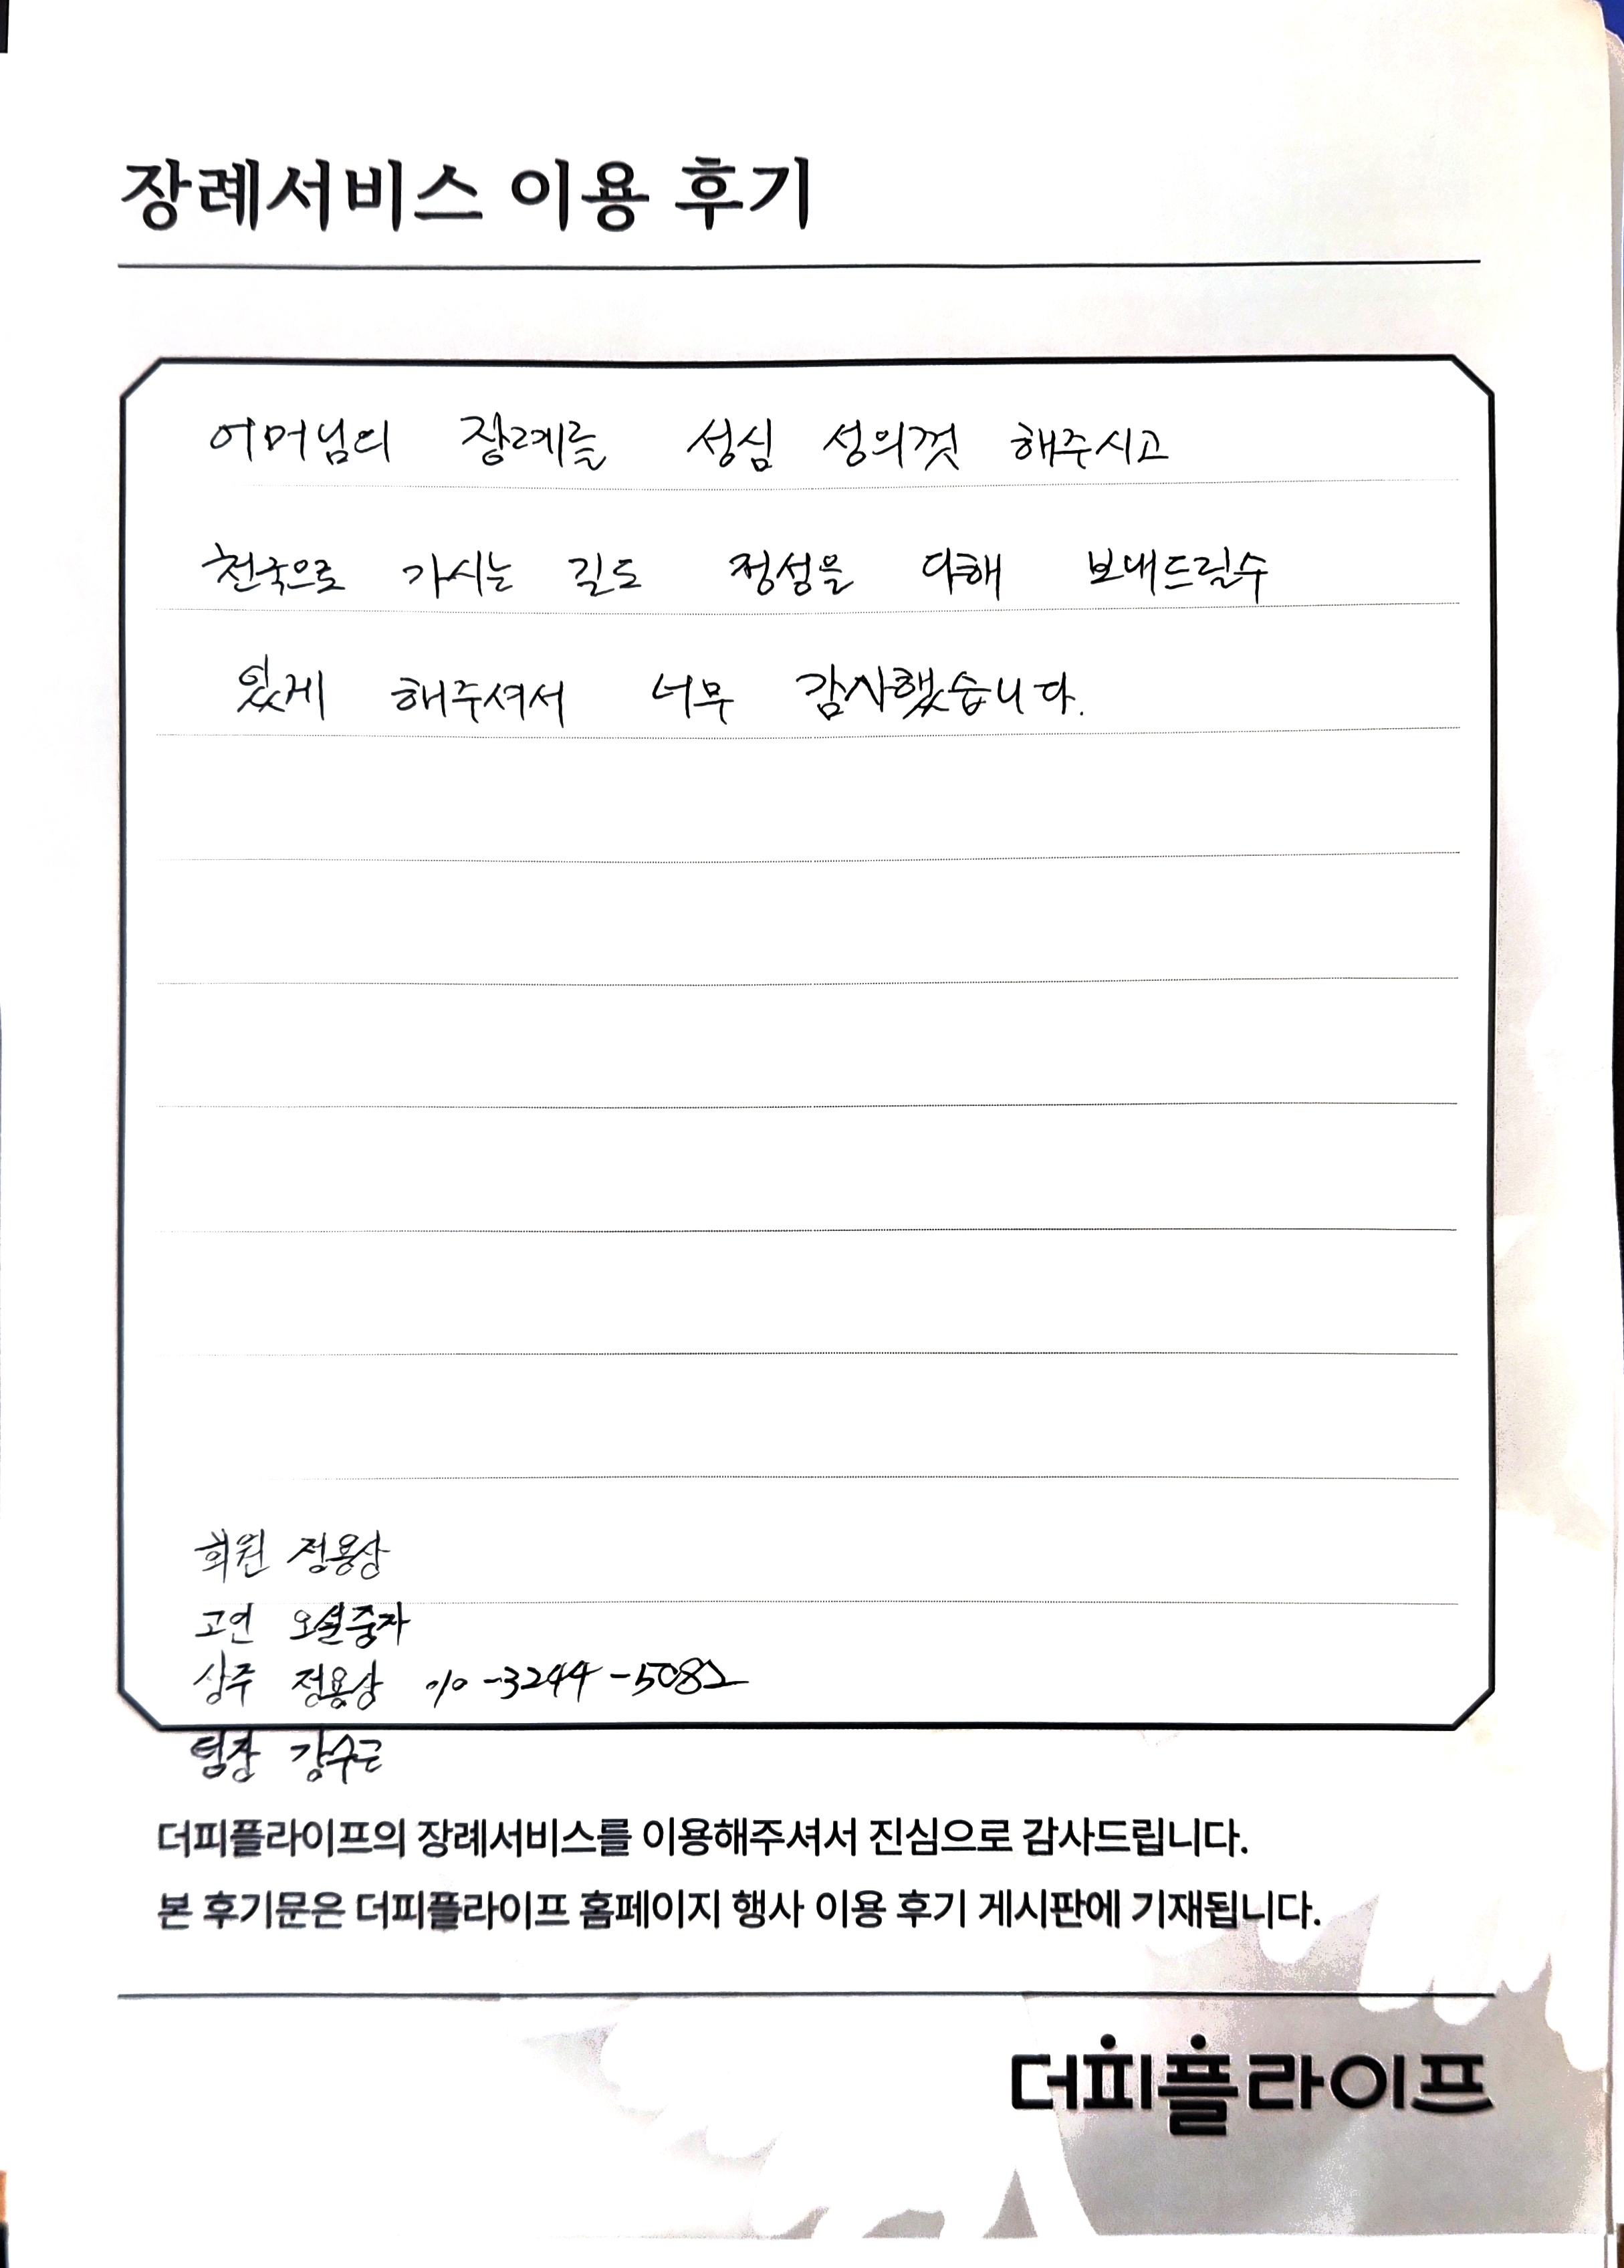 장례서비스 이용 후기
어머님의 장례를 성심 성의껏 해주시고
천국으로 가시는 길도 정성을 다해 보내드릴수
있게 해주셔서 너무 감사했습니다.
회원 정용상
고인
상주 정용상 010-3244-5082
팀장 강수근
더피플라이프의 장례서비스를 이용해주셔서 진심으로 감사드립니다.
본 후기문은 더피플라이프 홈페이지 행사 이용 후기 게시판에 기재됩니다.
더피플라이프